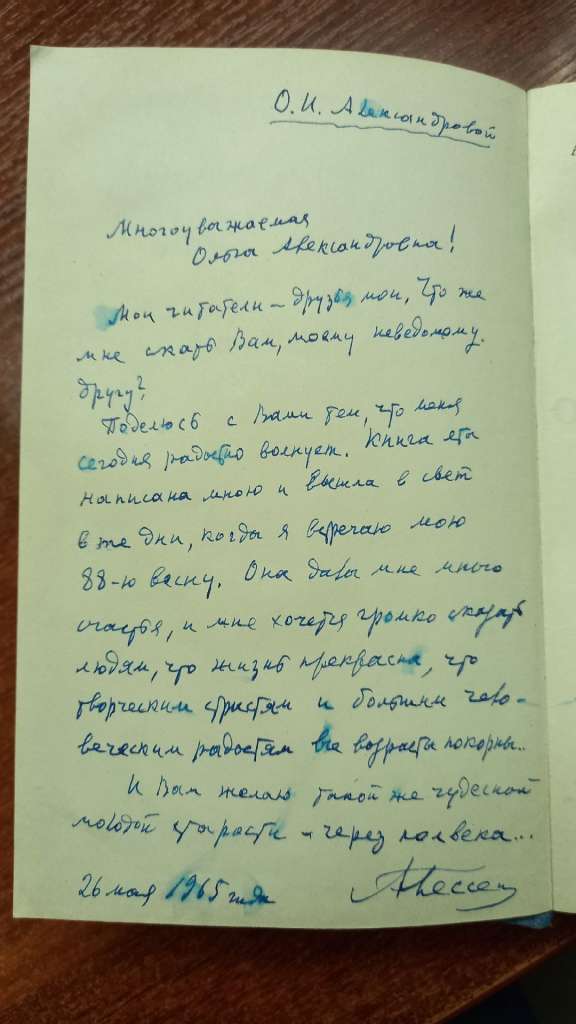 О. И. Александровой
Многоуважаемая
Ольга Александровна!
Мои читатели – друзья мои. Что же
мне сказать Вам, моему неведомому
другу?
Поделюсь с Вами тем, что меня
сегодня радостно волнует. Книга эта
написана мною и вышла в свет
в те дни, когда я встречаю мою
88-ю весну. Она дала мне много
счастья, и мне хочется громко сказать
людям, что жизнь прекрасна, что
творческим страстям и большим чело-
веческим радостям все возрасты покорны..
И Вам желаю такой же чудесной
молодой старости – через полвека...
26 мая 1965 года